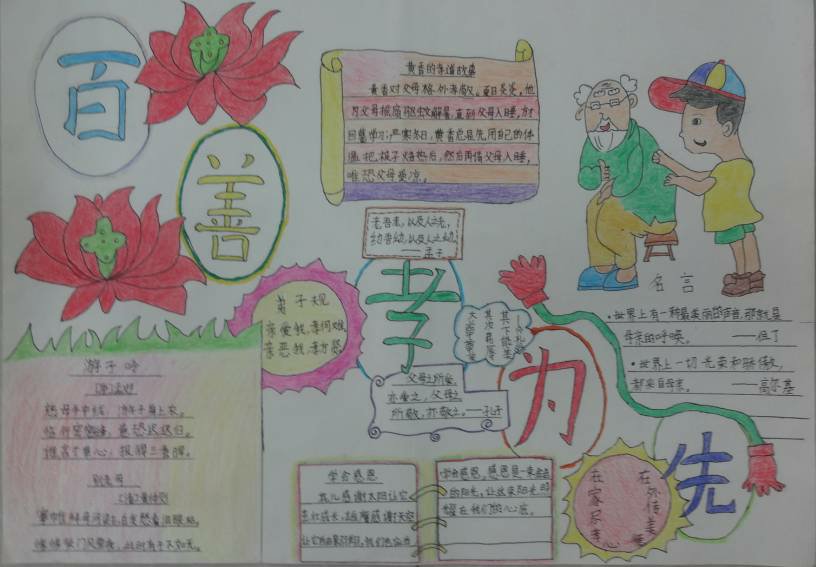 百
善
孝
为
先
黄香的孝道故事
黄香对父母格外孝敬,夏日炎炎,他
为父母摇扇驱蚊解暑,直到父母入睡,方才
回屋学习;严寒冬日,黄香总是先用自己的体
温把被子焐热后,然后再请父母入睡,
唯恐父母受凉。
老吾老,以及人之老,
幼吾幼,以及人之幼。
——孟子
弟子规
亲爱我,孝何难,
亲恶我,孝方贤。
大孝尊亲
其次弗辱
其下能养
——《礼记》
父母之所爱,
亦爱之,父母之
所敬,亦敬之。——孔子
名言
·世界上有一种最美丽的声音,那就是
母亲的呼唤。——但丁
·世界上一切光荣和骄傲,
都来自母亲。——高尔基
游子吟
[唐]孟郊
慈母手中线,游子身上衣。
临行密密缝,意恐迟迟归。
谁言寸草心,报得三春晖。
别老母
[清]黄仲则
搴帷拜母河梁去,白发愁看泪眼枯。
惨惨柴门风雪夜,此时有子不如无。
学会感恩
花儿感谢太阳让它
学会感恩,感恩是一束金色
的阳光,让这束阳光
在我们的心底。
在家尽孝心
在外传美